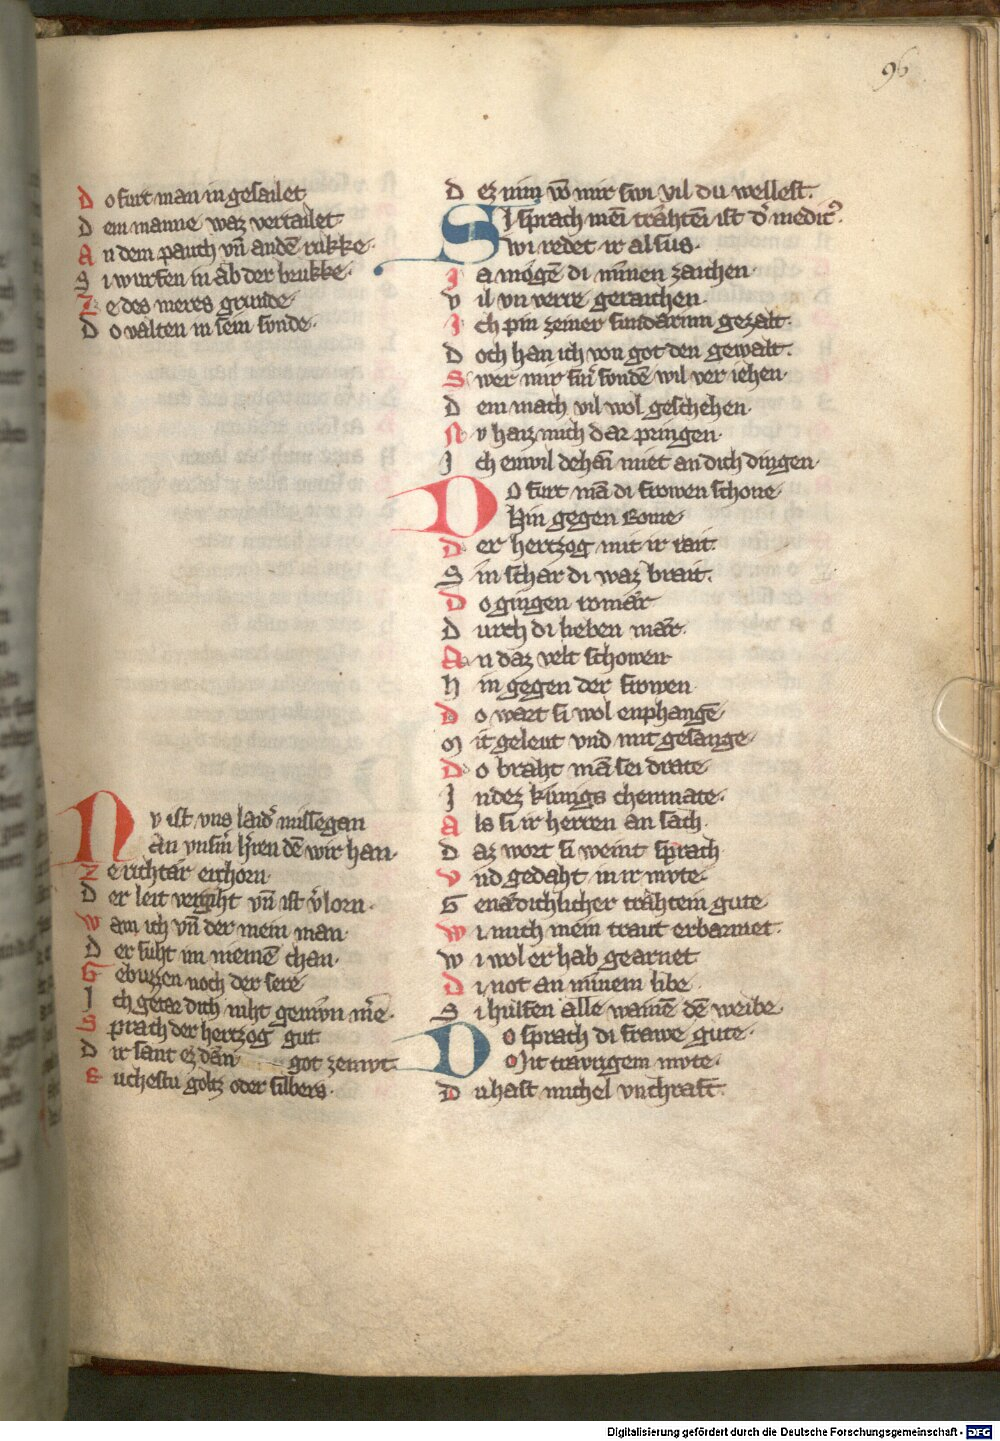 96
Do furt man in gesailet
Dem manne waz vertailet
An dem pauch vn̄ an dē rukke·
Si wurfen in ab der brukke·
Ze des meres grunde
Do valten in sein sunde·
Nv ist vns laid̾ missegan
An vnsm̄ h̾ren dē wir han·
Ze richtär erchorn·
Der leit vn̄ ist v̾lorn·
Wan ich vn̄ der mein man·
Der suht im niemē chan·
Gebuzzen noch der sere
Ich getar dich niht
Sprach der hertzog gut·
Dir sant ez dān got ze mvt·
Suchestu goltz oder silbers·
Dez nim vō mir swi vil du wellest·
Si sprach mēi trähtēi ist d̾ medic̾·
Swi redet ir alsus·
Ja mögē di minen zaichen·
Vil vnverre geraichen·
Ich pin zeiner sundärinn gezalt·
Doch han ich von got den gewalt·
Swer mir sin̄ sondē wil veriehen·
Dem mach vil wol geschehen·
Nv haiz mich dar pringen·
Ich enwil dehaī miet an dich dingen·
Do furt mā di frowen schone
Hin gegen Rome
Der hertzog mit ir rait·
Sin schar di waz brait·
Do gingen romär
Durch di lieben mär·
An daz velt schowen
Hin gegen der frowen
Do wart si wol enphangē·
Mit geleut vnd mit gesange
Do braht mā sei drate
In dez kunigs chemnate·
Als si ir herren an sach·
Daz wort si weint sprach
Vnd gedaht in ir mvte·
Genädichlicher trähtein gute
Wi mich mein traut erbarmet·
Wi wol er hab gearnet
Di not an minem libe
Si hulfen alle wainē dē weibe
Do sprach di frawe gute·
Mit travrigem mvte·
Du hast michel vnchraft·
Digitalisierung gefördert durch die Deutsche Forschungsgemeinschaft - DFG